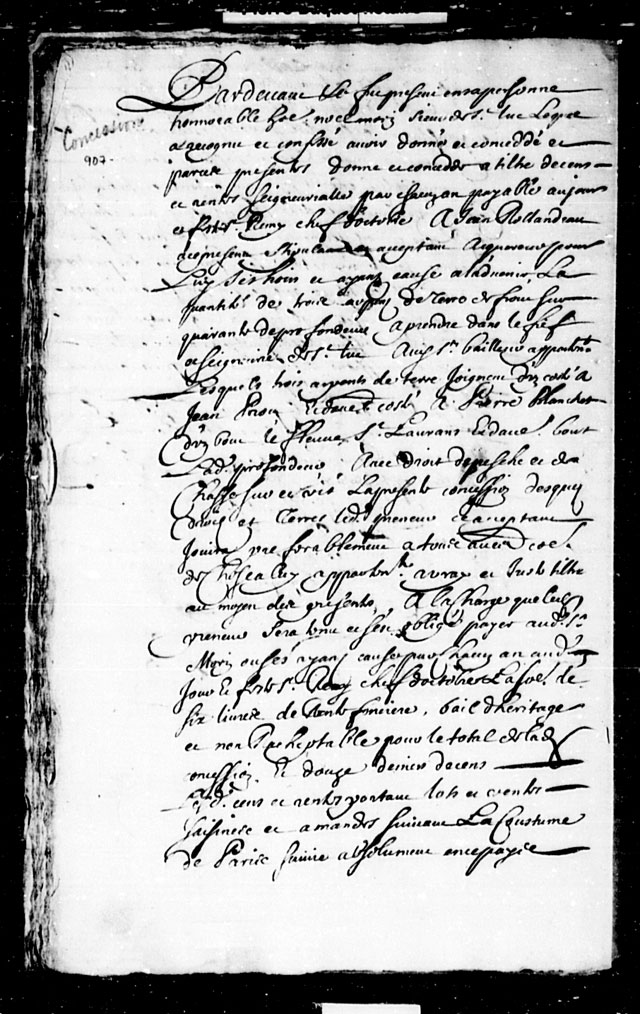 Concession
907.
Pardevant Le fut present en sa personne
honnorable hoe noel morin sieur de St luc Lequel
a recogneu et confessé avoir donné et conceddé et
par ces presentes donne et concedde a tiltre de cens
et rentes seigneurialles par chacun an payable au jour
et feste St Remy chef d'octobre A Jean Rollandeau
a ce present stipulant et acceptant acquereur pour
Luy ses hoirs et ayans cause a l'advenir La
quantité de trois arpens de terre de front sur
quarante de profondeur a prendre dans le fief
et seigneurie de St luc Aud. Sr bailleur appartent
Lesquels trois arpents de terre Joignent d'un costé a
Jean Prou Et d'autre costé A Pierre Blanchet
d'un bout le fleuve St Laurans Et d'autre bout
Lad. profondeur Avec droit de pesche et de
Chasse sur et vis La presente concession desquels
droits et Terres led. preneur et acceptant
Jouira
de chose a luy appartente a vray et Juste tiltre
au moyen des presentes, A la charge que led.
preneur sera tenu et s'est obligé payer aud. Sr
Morin ou ses ayans cause par chacun an aud.
Jour et feste St Remy chef d'octobre La soe. de
six livres de rente fonciere, bail d'heritage
et non Racheptable pour le total de lad.
concession Et douze deniers de cens
Lesd. cens et rentes portant lots et ventes
saisines et amandes suivant La Coustume
de Paris suivie absolument en ce pays